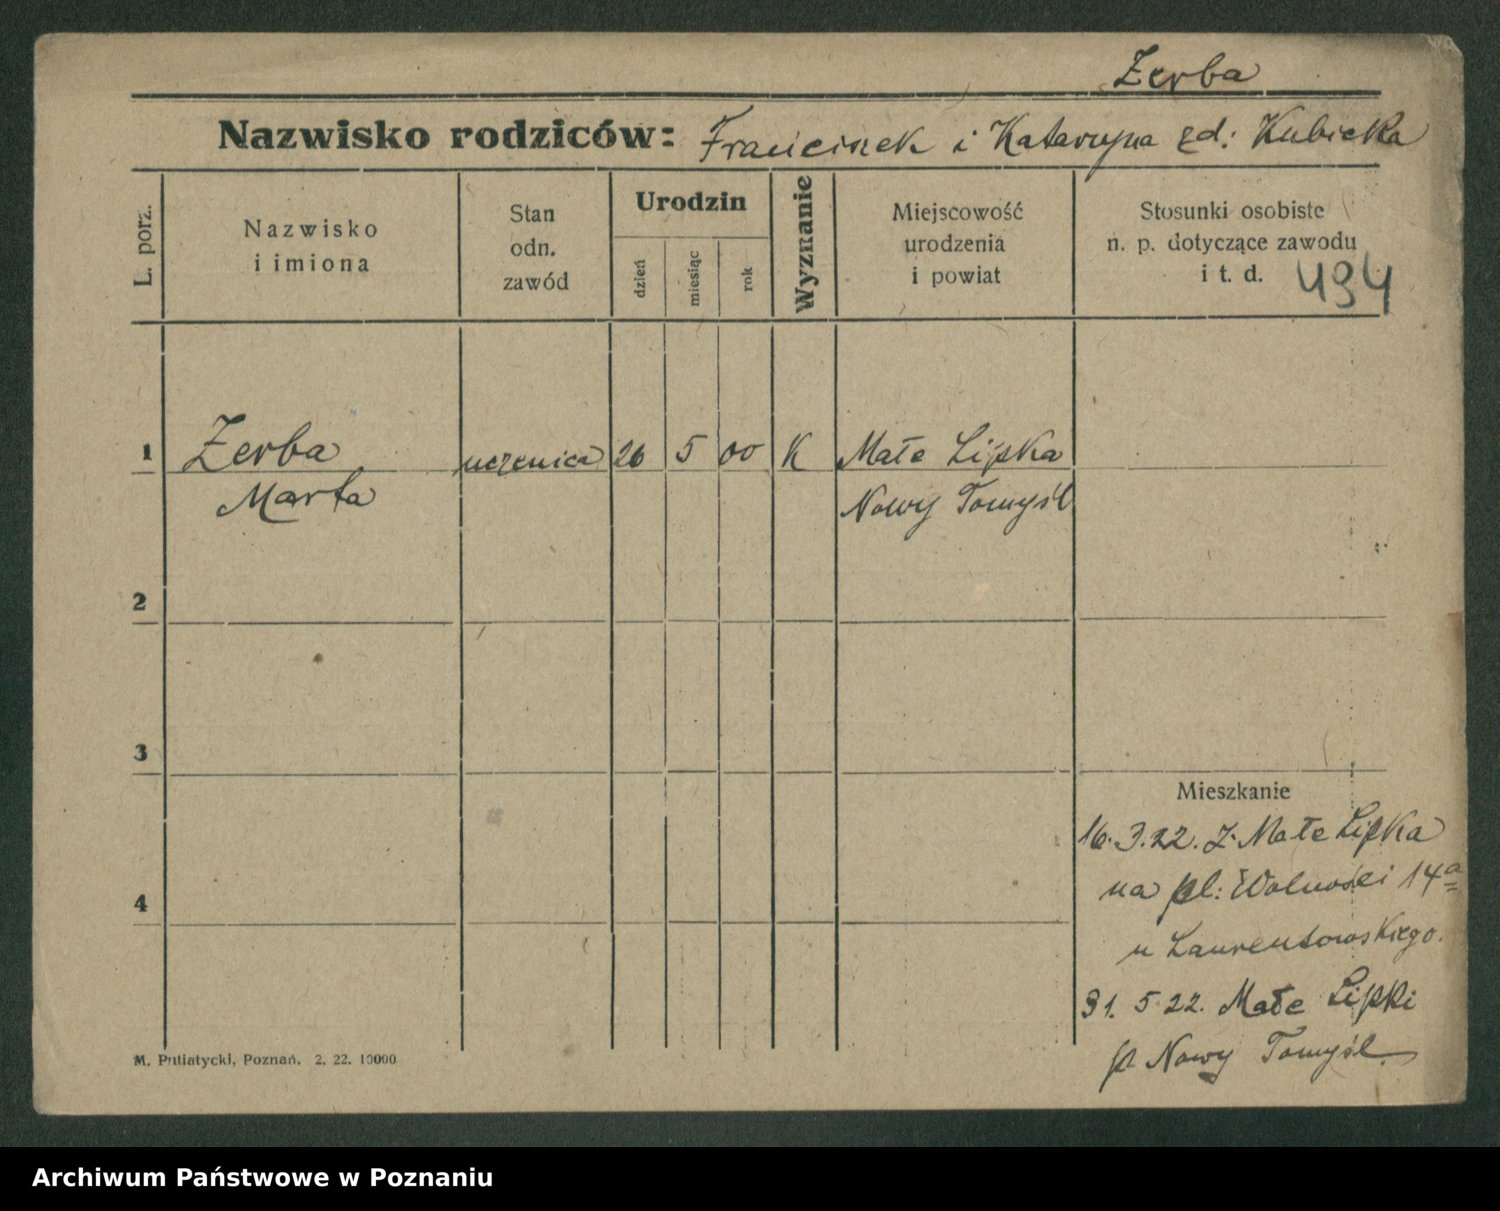 Zerba
Nazwisko rodziców: Franciszek i Katarzyna zd: Kubicka
L. porz.
Nazwisko
i imiona
Stan
odn.
zawód
Urodzin
dzień
miesiąc
rok
Wyznanie
Miejscowość
urodzenia
i powiat
Stosunki osobiste
n. p. dotyczące zawodu
i t. d. 494
1 Zerba uczenica 26 5 00 K Małe Lipka
Marta Nowy Tomyśl
2
3
Mieszkanie
16. 3. 22. z Małe Lipka
na pl: Wolności 14a
4
u Laurentowskiego.
31. 5 22. Małe Lipki
p Nowy Tomyśl.
M. Putiatycki, Poznań. 2. 22. 10000
Archiwum Państwowe w Poznaniu